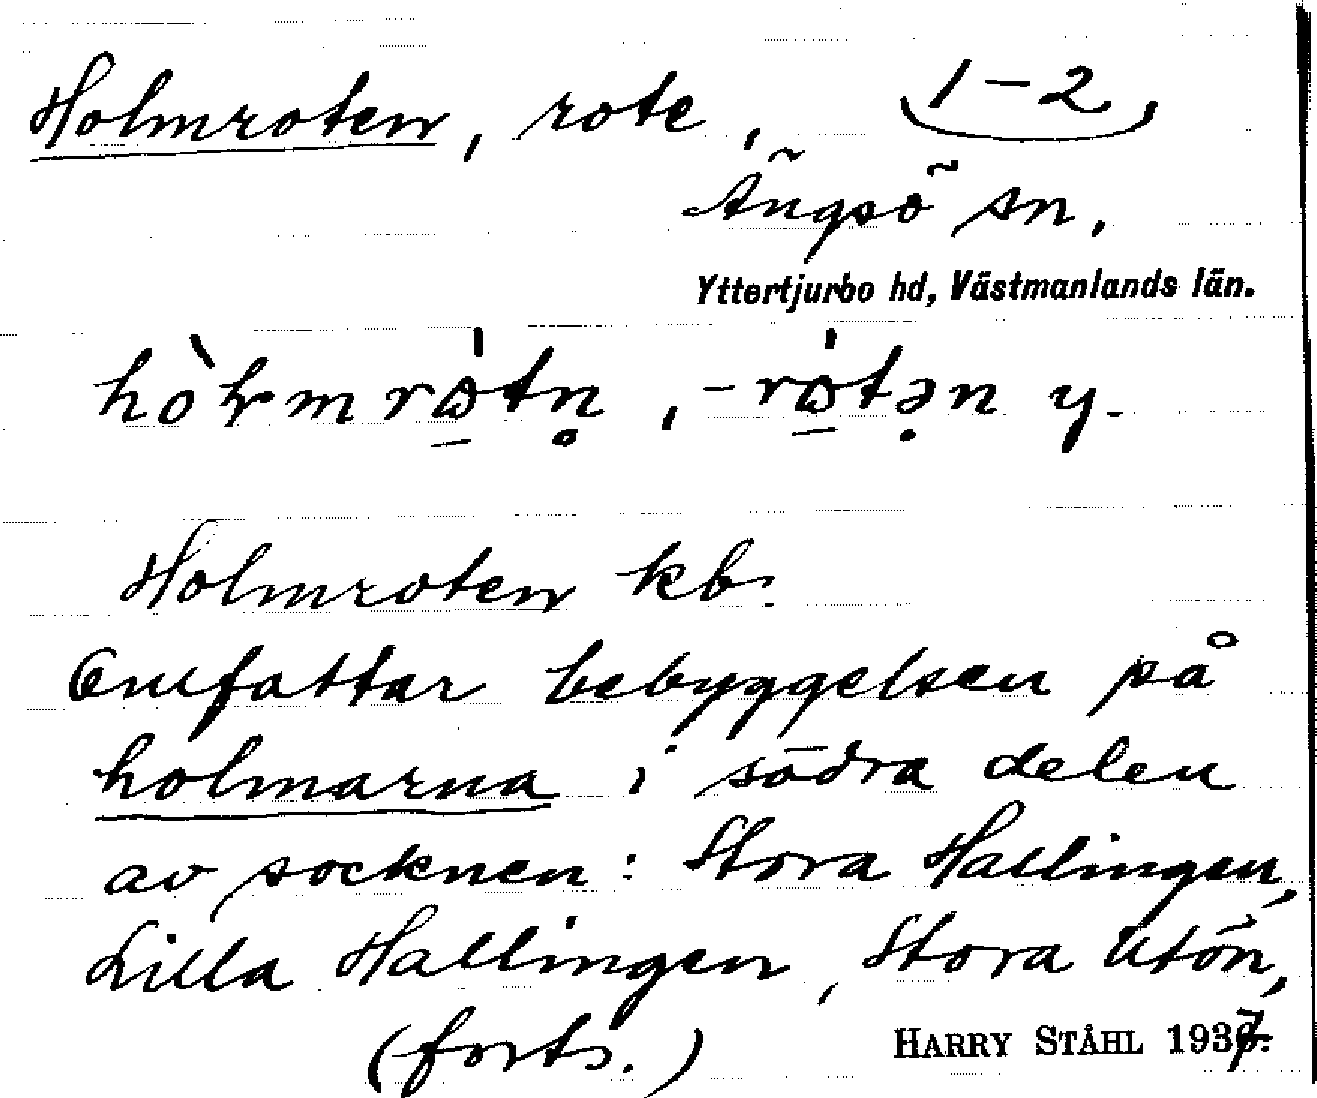 Holmroten, rote, 1-2
Ängsö sn,
Yttertjurbo hd, Västmanlands län.
Holmroten kb.
Omfattar bebyggelsen på
holmarna i södra delen
av socknen: Stora Hallingen,
Lilla Hallingen, Stora Utön,
(forts.)
HARRY STÅHL 1937